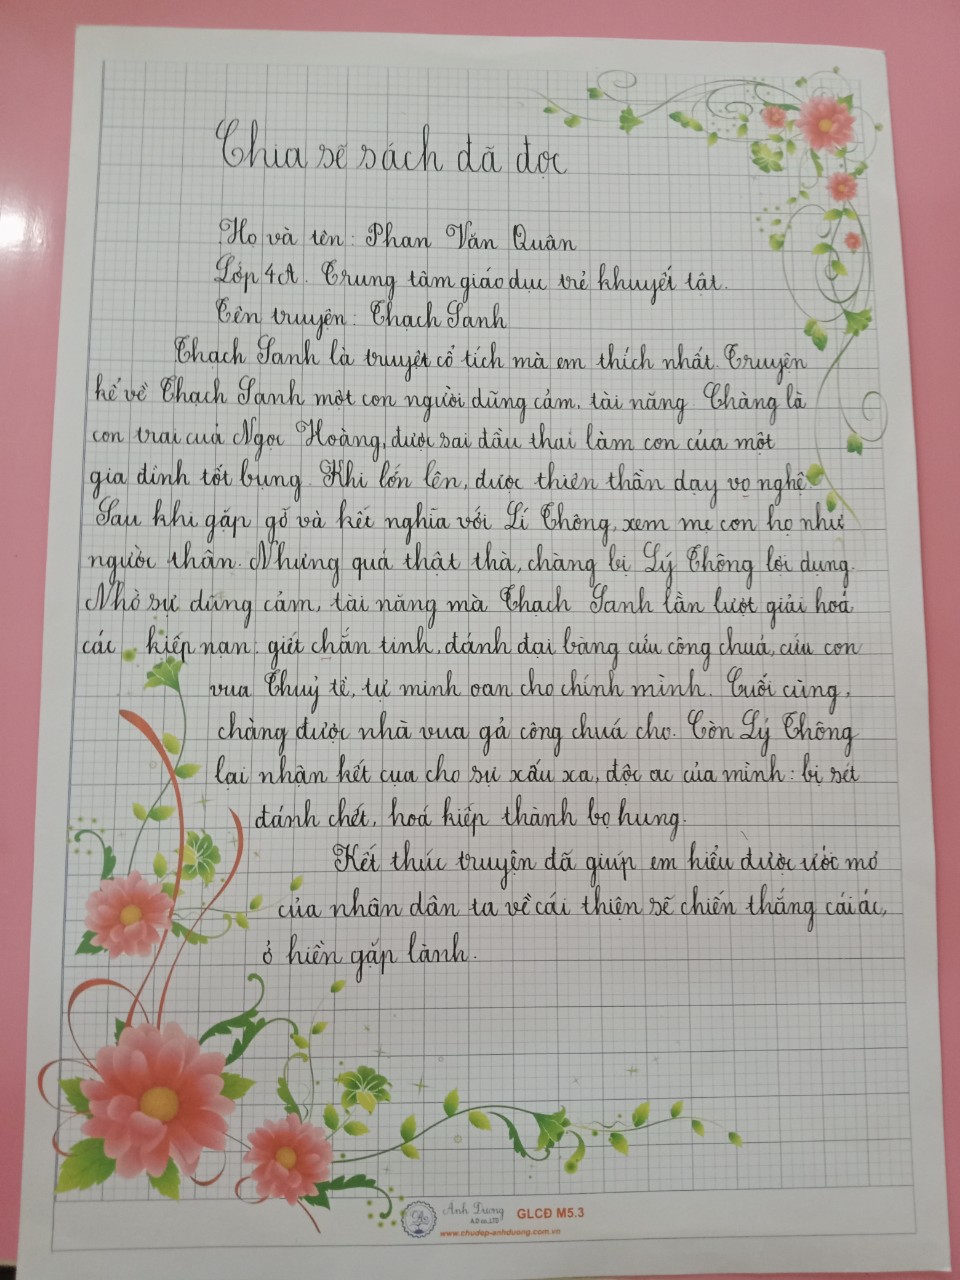 Chia sẽ sách đã đọc
Họ và tên: Phan Văn Quân
Lớp 4A. Trung tâm giáo dục trẻ khuyết tật.
Tên truyện: Thạch Sanh
Thạch Sanh là truyệt cổ tích mà em thích nhất. Truyện
kể về Thạch Sanh một con người dũng cảm, tài năng. Chàng là
con trai cuả Ngọc Hoàng, được sai đầu thai làm con của một
gia đình tốt bụng. Khi lớn lên, được thiên thần dạy võ nghệ.
Sau khi gặp gỡ và kết nghĩa với Lí Thông, xem mẹ con họ như
người thân. Nhưng quá thật thà, chàng bị Lý Thông lợi dụng.
Nhờ sự dũng cảm, tài năng mà Thạch Sanh lần lượt giải hoá
các kiếp nạn: giết chắn tinh, đánh đại bàng cứu công chuá, cứu con
vua Thuỷ tề, tự minh oan cho chính mình. Cuối cùng,
chàng được nhà vua gả công chuá cho. Còn Lý Thông
lại nhận kết cụa cho sự xấu xa, độc ac của mình: bị sét
đánh chết, hoá kiếp thành bọ hung.
Kết thúc truyện đã giúp em hiểu được ước mơ
của nhân dân ta về cái thiện sẽ chiến thắng cái ác,
ở hiền gặp lành.
Anh Dương
A.D co.,LTD
GLCĐ M5.3
www.chudep-anhduong.com.vn